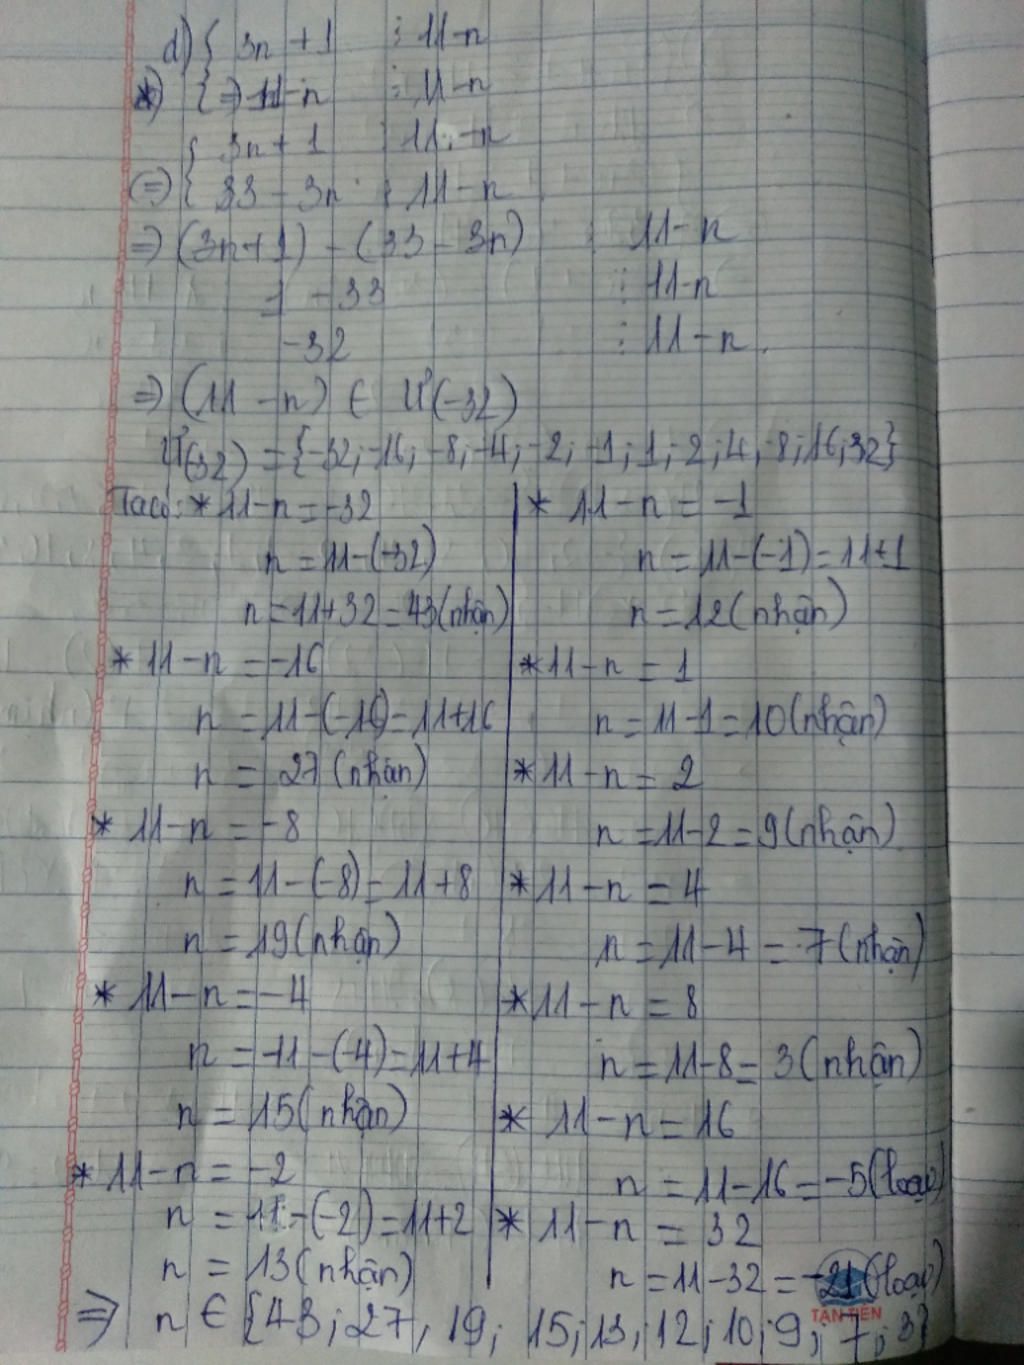 d) { 3n + 1 ⋮ 11-n
*) { => 11-n ⋮ 11-n
{ 3n + 1 ⋮ 11-n
(=>) { 33 - 3n ⋮ 11-n
=> (3n+1) - (33-3n) ⋮ 11-n
1 - 33 ⋮ 11-n
-32 ⋮ 11-n.
=> (11-n) ∈ Ư(-32)
Ư(32) = {-32; -16; -8; -4; -2; -1; 1; 2; 4; 8; 16; 32}
Ta có: * 11-n = -32
n = 11-(-32)
n = 11+32 = 43 (nhận)
* 11-n = -16
n = 11-(-16) = 11+16
n = 27 (nhận)
* 11-n = -8
n = 11-(-8) = 11+8
n = 19 (nhận)
* 11-n = -4
n = 11-(-4) = 11+4
n = 15 (nhận)
* 11-n = -2
n = 11-(-2) = 11+2
n = 13 (nhận)
* 11-n = -1
n = 11-(-1) = 11+1
n = 12 (nhận)
* 11-n = 1
n = 11-1 = 10 (nhận)
* 11-n = 2
n = 11-2 = 9 (nhận)
* 11-n = 4
n = 11-4 = 7 (nhận)
* 11-n = 8
n = 11-8 = 3 (nhận)
* 11-n = 16
n = 11-16 = -5 (loại)
* 11-n = 32
n = 11-32 = -21 (loại)
=> n ∈ {43; 27; 19; 15; 13; 12; 10; 9; 7; 3}
TÂN TIẾN